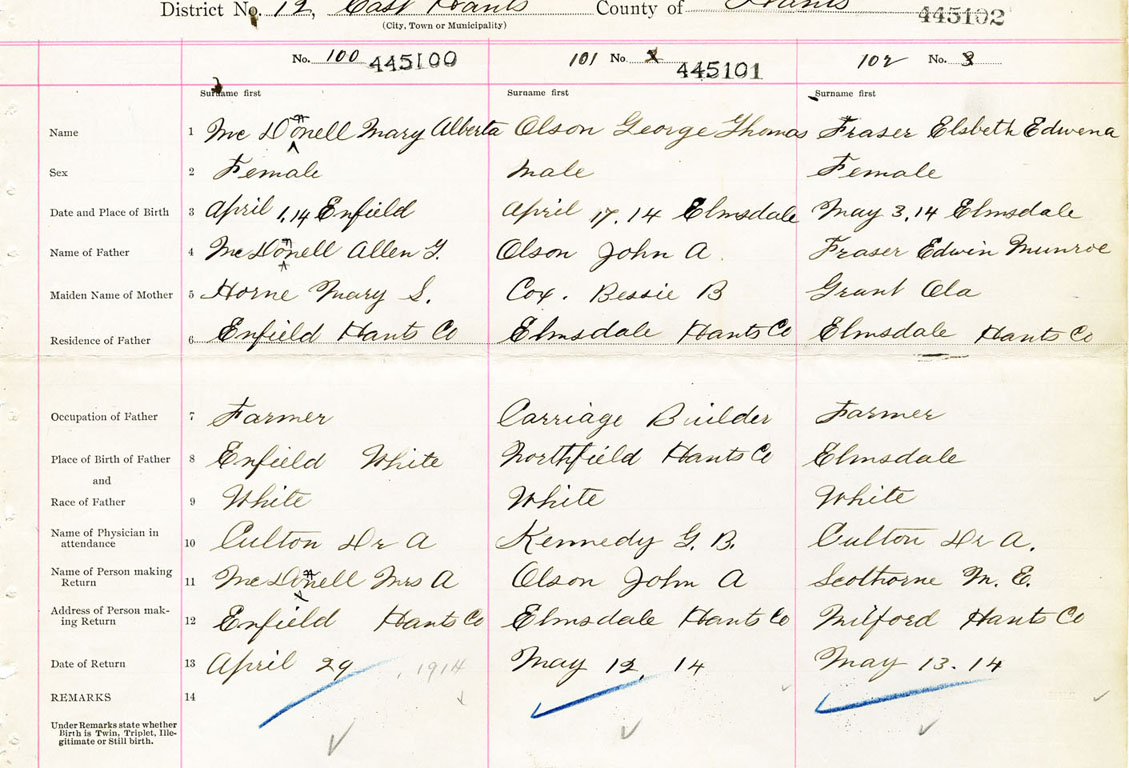 District No. 12, East Hants County of Hants 445102
(City, Town or Municipality)
No. 100 445100 101 No. 2 445101 102 No. 3
Surname first Surname first Surname first
Name 1 McDonell Mary Alberta Olson George Thomas Fraser Elsbeth Edwena
Sex 2 Female Male Female
Date and Place of Birth 3 April 1,14 Enfield April 17,14 Elmsdale May 3,14 Elmsdale
Name of Father 4 McDonell Allen Olson John A. Fraser Edwin Munroe
Maiden Name of Mother 5 Horne Mary S. Cox. Bessie B Grant Ola
Residence of Father 6 Enfield Hants Co Elmsdale Hants Co Elmsdale Hants Co
Occupation of Father 7 Farmer Carriage Builder Farmer
Place of Birth of Father 8 Enfield White Northfield Hants Co Elmsdale
and
Race of Father 9 White White White
Name of Physician in
attendance 10 Culton Dr A Kennedy G. B. Culton Dr A.
Name of Person making
Return 11 McDonell Mrs A Olson John A Scothorne M. E.
Address of Person mak-
ing Return 12 Enfield Hants Co Elmsdale Hants Co Milford Hants Co
Date of Return 13 April 29, 1914 May 12, 14 May 13. 14
REMARKS 14
Under Remarks state whether
Birth is Twin, Triplet, Ille-
gitimate or Still birth.